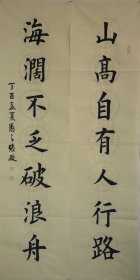 山高自有人行路
海阔不乏破浪舟
丁酉孟夏